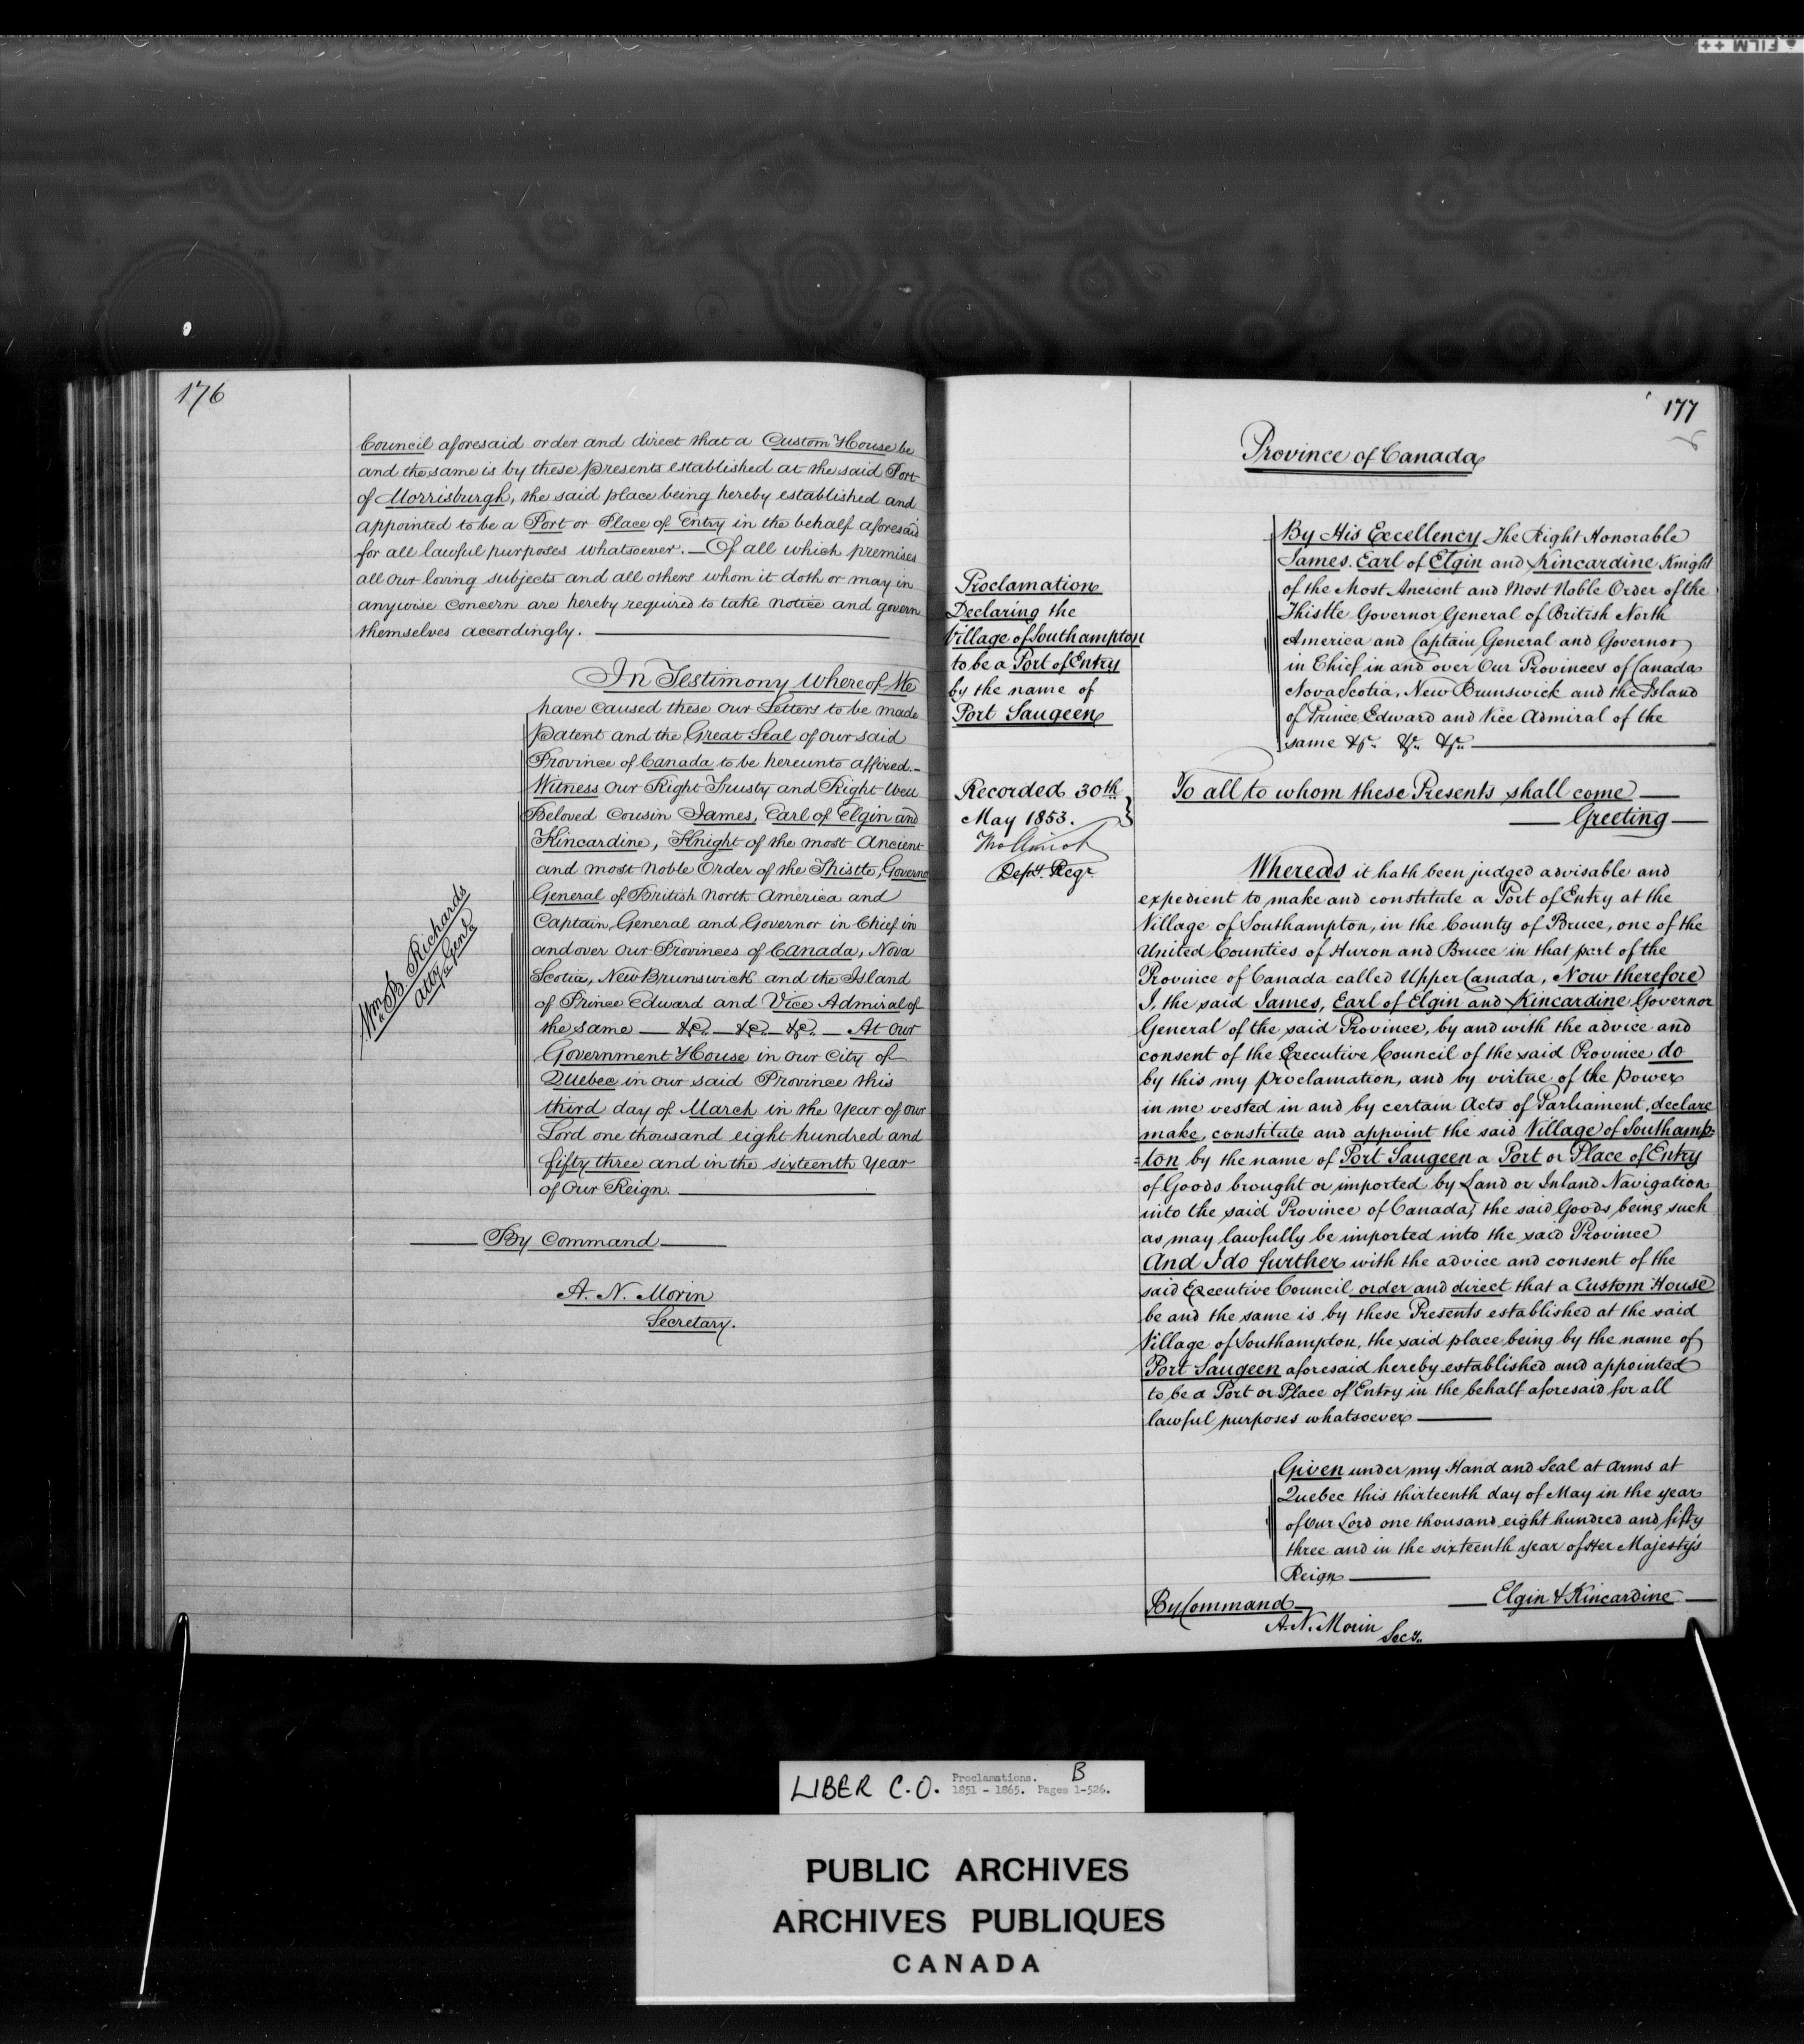 176
Council aforesaid order and direct that a Custom House be
and the same is by these presents established at the said Port
of Morrisburgh, the said place being hereby established and
appointed to be a Port or Place of Entry in the behalf aforesaid
for all lawful purposes whatsoever. — Of all which premises
all our loving subjects and all others whom it doth or may in
anywise concern are hereby required to take notice and govern
themselves accordingly. —
In Testimony whereof We
have caused these our Letters to be made
Patent and the Great Seal of our said
Province of Canada to be hereunto affixed. –
Witness our Right Trusty and Right Well
Beloved Cousin James, Earl of Elgin and
Kincardine, Knight of the most Ancient
and most Noble Order of the Thistle, Governor
General of British North America and
Captain General and Governor in Chief in
and over our Provinces of Canada, Nova
Scotia, New Brunswick and the Island
of Prince Edward and Vice Admiral of
the same — &c. — &c. — &c. — At our
Government House in our City of
Quebec in our said Province this
third day of March in the Year of our
Lord one thousand eight hundred and
fifty three and in the sixteenth Year
of Our Reign. —
Wm. B. Richards
Atty. Genl.
— By Command —
A. N. Morin
Secretary.
177
Province of Canada
Proclamation
Declaring the
Village of Southampton
to be a Port of Entry
by the name of
Port Saugeen
Recorded 30th
May 1853.
Thos Amiot
Depy. Regr.
By His Excellency The Right Honorable
James. Earl of Elgin and Kincardine Knight
of the Most Ancient and Most Noble Order of the
Thistle Governor General of British North
America and Captain General and Governor
in Chief in and over Our Provinces of Canada
Nova Scotia, New Brunswick and the Island
of Prince Edward and Vice Admiral of the
same &c. &c. &c. —
To all to whom these Presents shall come —
— Greeting —
Whereas it hath been judged advisable and
expedient to make and constitute a Port of Entry at the
Village of Southampton, in the County of Bruce, one of the
United Counties of Huron and Bruce in that part of the
Province of Canada called Upper Canada, Now therefore
I, the said James, Earl of Elgin and Kincardine Governor
General of the said Province, by and with the advice and
consent of the Executive Council of the said Province do
by this my proclamation, and by virtue of the power
in me vested in and by certain Acts of Parliament, declare
make, constitute and appoint the said Village of Southamp=
=ton by the name of Port Saugeen a Port or Place of Entry
of Goods brought or imported by Land or Inland Navigation
into the said Province of Canada, the said Goods being such
as may lawfully be imported into the said Province
And I do further with the advice and consent of the
said Executive Council order and direct that a Custom House
be and the same is by these Presents established at the said
Village of Southampton, the said place being by the name of
Port Saugeen aforesaid hereby established and appointed
to be a Port or Place of Entry in the behalf aforesaid for all
lawful purposes whatsoever —
Given under my Hand and Seal at Arms at
Quebec this thirteenth day of May in the year
of Our Lord one thousand eight hundred and fifty
three and in the sixteenth year of Her Majesty's
Reign —
— Elgin & Kincardine —
By Command
A. N. Morin
Secy.
LIBER C.O. Proclamations. B
1851 - 1865. Pages 1-526.
PUBLIC ARCHIVES
ARCHIVES PUBLIQUES
CANADA
FILM ++